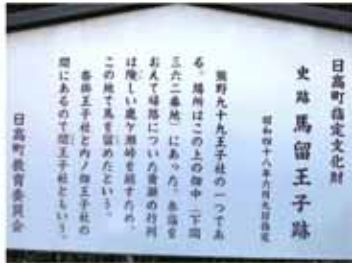 日高町指定文化財
史跡 馬留王子跡
昭和四十八年六月九日指定
熊野九十九王子社の一つであ
る。場所はこの上の畑中(下間
三六二番地)にあった。参詣を
おえて帰路についた貴顕の行列
は険しい鹿ケ瀬峠を越すため、
この地で馬を留めたという。
沓掛王子社と内ノ畑王子社の
間にあるので間王子社ともいう。
日高町教育委員会